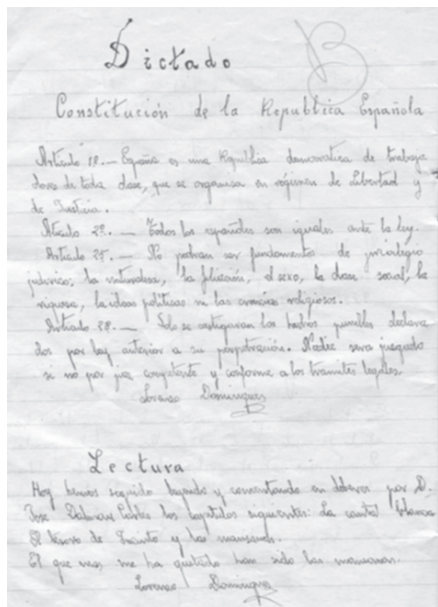 Dictado
B
Constitución de la Republica Española
Artículo 1º.— España es una Republica democratica de trabaja
dores de toda clase, que se organiza en régimen de Libertad y
de Justicia.
Artículo 2º.— Todos los españoles son iguales ante la ley.
Artículo 25.— No podran ser fundamento de privilegio
juridico; la naturaleza, la filiación, el sexo, la clase social, la
riqueza, las ideas politicas ni las creencias religiosos.
Artículo 28.— Solo se castigaran los hechos punibles declara
dos por ley anterior a su perpetración. Nadie sera juzgado
si no por juez competente y conforme a los tramites legales.
Lorenzo Dominguez
Lectura
Hoy hemos seguido leyendo y comentando en deberes por D.
Jose los capitulos siguientes: La blanca
El tesoro de y las manzanas.
El que mas me ha gustado han sido las manzanas.
Lorenzo Dominguez